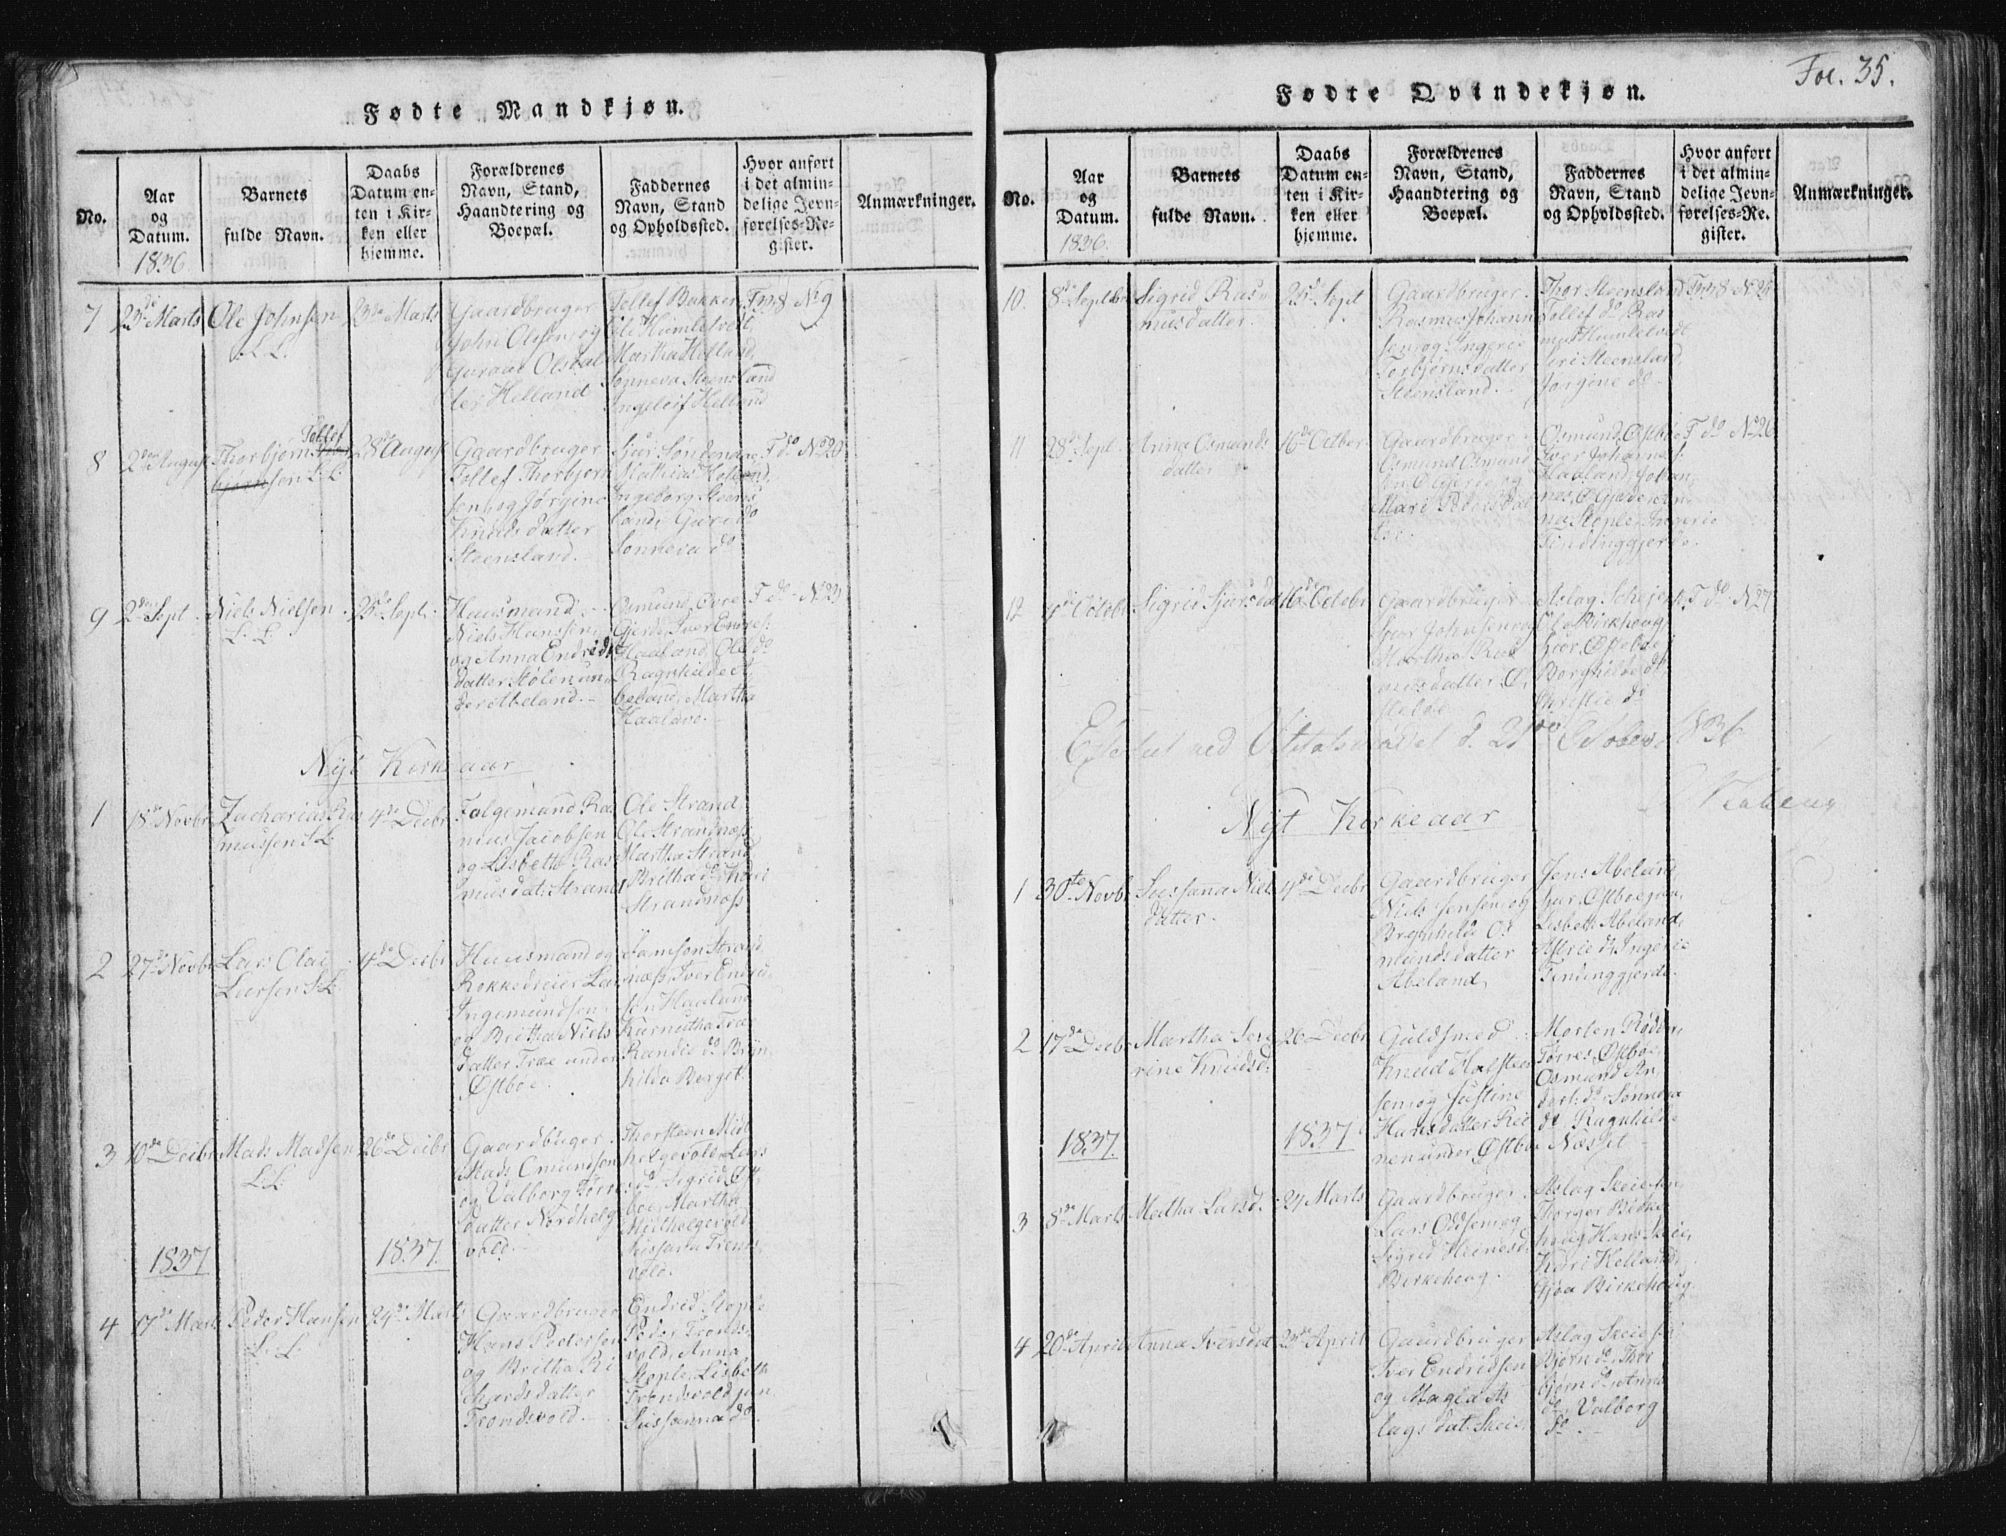 Fødte Mandkjøn.
No.
Aar
og
Datum.
1836
Barnets
fulde Navn.
Daabs
Datum en-
ten i Kir-
ken eller
hjemme.
Forældrenes
Navn, Stand,
Haandtering og
Boepæl.
Faddernes
Navn, Stand
og Opholdssted.
Hvor anført
i det almin-
delige Jevn-
førelses-Re-
gister.
Anmærkninger.
7
23de Marts
Ole Johnsen
L.L.
23de Marts
Gaardbruger
John Olsen og
Olsdat
ter Helland
Tollef Bakker
Ole Humletvedt
Martha Helland
Steensland
Helland
F. 338 No 9
8
2den August
Thorbjørn Tollef
sen L.L.
28de August
Gaardbruger
Tollef Thorbjørn
sen, og Jørgine
Knudsdatter
Steensland.
Mathias Helland,
Ingeborg Steens
land, do
Sonneva do
F do No 20
9
2den Sept
Niels Nielsen
L. L.
25de Sept.
Huusmand
Niels Hansen,
og Anna Endrids
datter Stølen un
der Abeland.
Osmund Øvre
Gjerde, Iver Endres:
Haaland, Ole do
Ragnhilde A
beland, Martha
Haaland.
F do No 23
Nyt Kirkeaar
1
18de Novbr
Zacharias Ras
mussen L.L.
4de Decbr
Ras
mus Jacobsen
og Lisbeth Ras
musdat: Strand
Ole Strand
Ole Strandnæss
Martha Strand
Britha do
Strandnæss
2
27de Novbr
Lars Olai
Larsen L.L.
4de Decbr
Huusmand og
Rokkedreier Lars
Ingemundsen,
og Britha Niels
datter Træe under
Østboe.
Samson Strand
næss, Iver Endrid
sen Haaland
Træe
Randie do Bryn
hilda Berget.
3
10de Decbr
Mads Madsen
L.L.
26de Decbr
Gaardbruger
Mads Omundsen
og Valborg Tørres
datter Nordhelge
vold.
Thorsteen Midt
helgevold, Lars
do Sigrid Øst
boe, Martha
Midthelgevold
Sussana Tronds
vold.
1837
1837
4
17de Marts
Peder Hansen
L.L.
24de Marts
Gaardbruger
Hans Pedersen
og Britha Ri
chardsdatter
Trondsvold.
Endred Stople
Peder Tronds
vold, Anna
Stople, Lisbeth
Trondsvold
Sussanna do.
Fol. 35.
Fødte Qvindekjøn.
No.
Aar
og
Datum.
1836.
Barnets
fulde Navn.
Daabs
Datum en-
ten i Kir-
ken eller
hjemme.
Forældrenes
Navn, Stand,
Haandtering og
Boepæl.
Faddernes
Navn, Stand
og Opholdssted.
Hvor anført
i det almin-
delige Jevn-
førelses-Re-
gister.
Anmærkninger.
10.
8de Septbr
Sigrid Ras
musdatter.
25de Sept
Gaardbruger
Rasmus Johann
sen og Ingerie
Torbjørnsdatter
Steensland.
Thor Steensland
Tollef do, Ras
mus Humletvedt
Steensland,
Jørgine do
F. 338 No 25
11
28de Sept.
Anna Osmunds
datter
16de Octbr
Gaardbruger
Osmund Osmund
sen Ø Gjerde og
Mari Pedersdat
ter.
Osmund Østboe
Iver Johannes:
Haaland, Johan
nes Ø Gjerde, An
na Stople, Ingerie
Findinggjerde.
F do No 26
12
4de Octobr
Sigrid Sjursdat
16de Octobr
Gaardbruger
Sjur Johnsen og
Martha Ras
musdatter Ø
steboe
Aslag
Ole Birkhoug
Sjur Østeboe
Borghilde do
Christie do
F do No 27
Efterseet ved Visitatsmødet d. Octobr 1836
Nyt Kirkeaar
1
30te Novbr
Sussana Niels
datter.
4de Decbr
Gaardbruger
Niels Jensen, og
Brynhilde Os
mundsdatter
Abeland,
Jens Abeland,
Sjur Østboe
Lisbeth Abeland,
do, Ingerie
Findinggjerde.
2
17de Decbr
Martha Seve
rine Knudsd:
26 Decbr
Guldsmed
Knud Halsteen
sen, og Justine
Hansdatter
under Østboe
Morten
Tørres Østboe,
Osmund
do Sønneva
do Ragnhilde
Næsset
1837.
1837
3
8de Marts
Martha Larsd.
24 Marts
Gaardbruger
Lars Oddsen og
Sigrid
Birkehoug.
Aslag Skeie
Thorger Birke
houg Hans Skeie,
Kari Helland,
Gjøa Birkehoug.
4
20de April
Anna Iversdat
23de April
Gaardbruger
Iver Endridsen
og Magla As
lagsdat: Skeie.
Aslag Skeie
Bjørn do, Thor
bjørn do, Anna
do, Valborg
do.